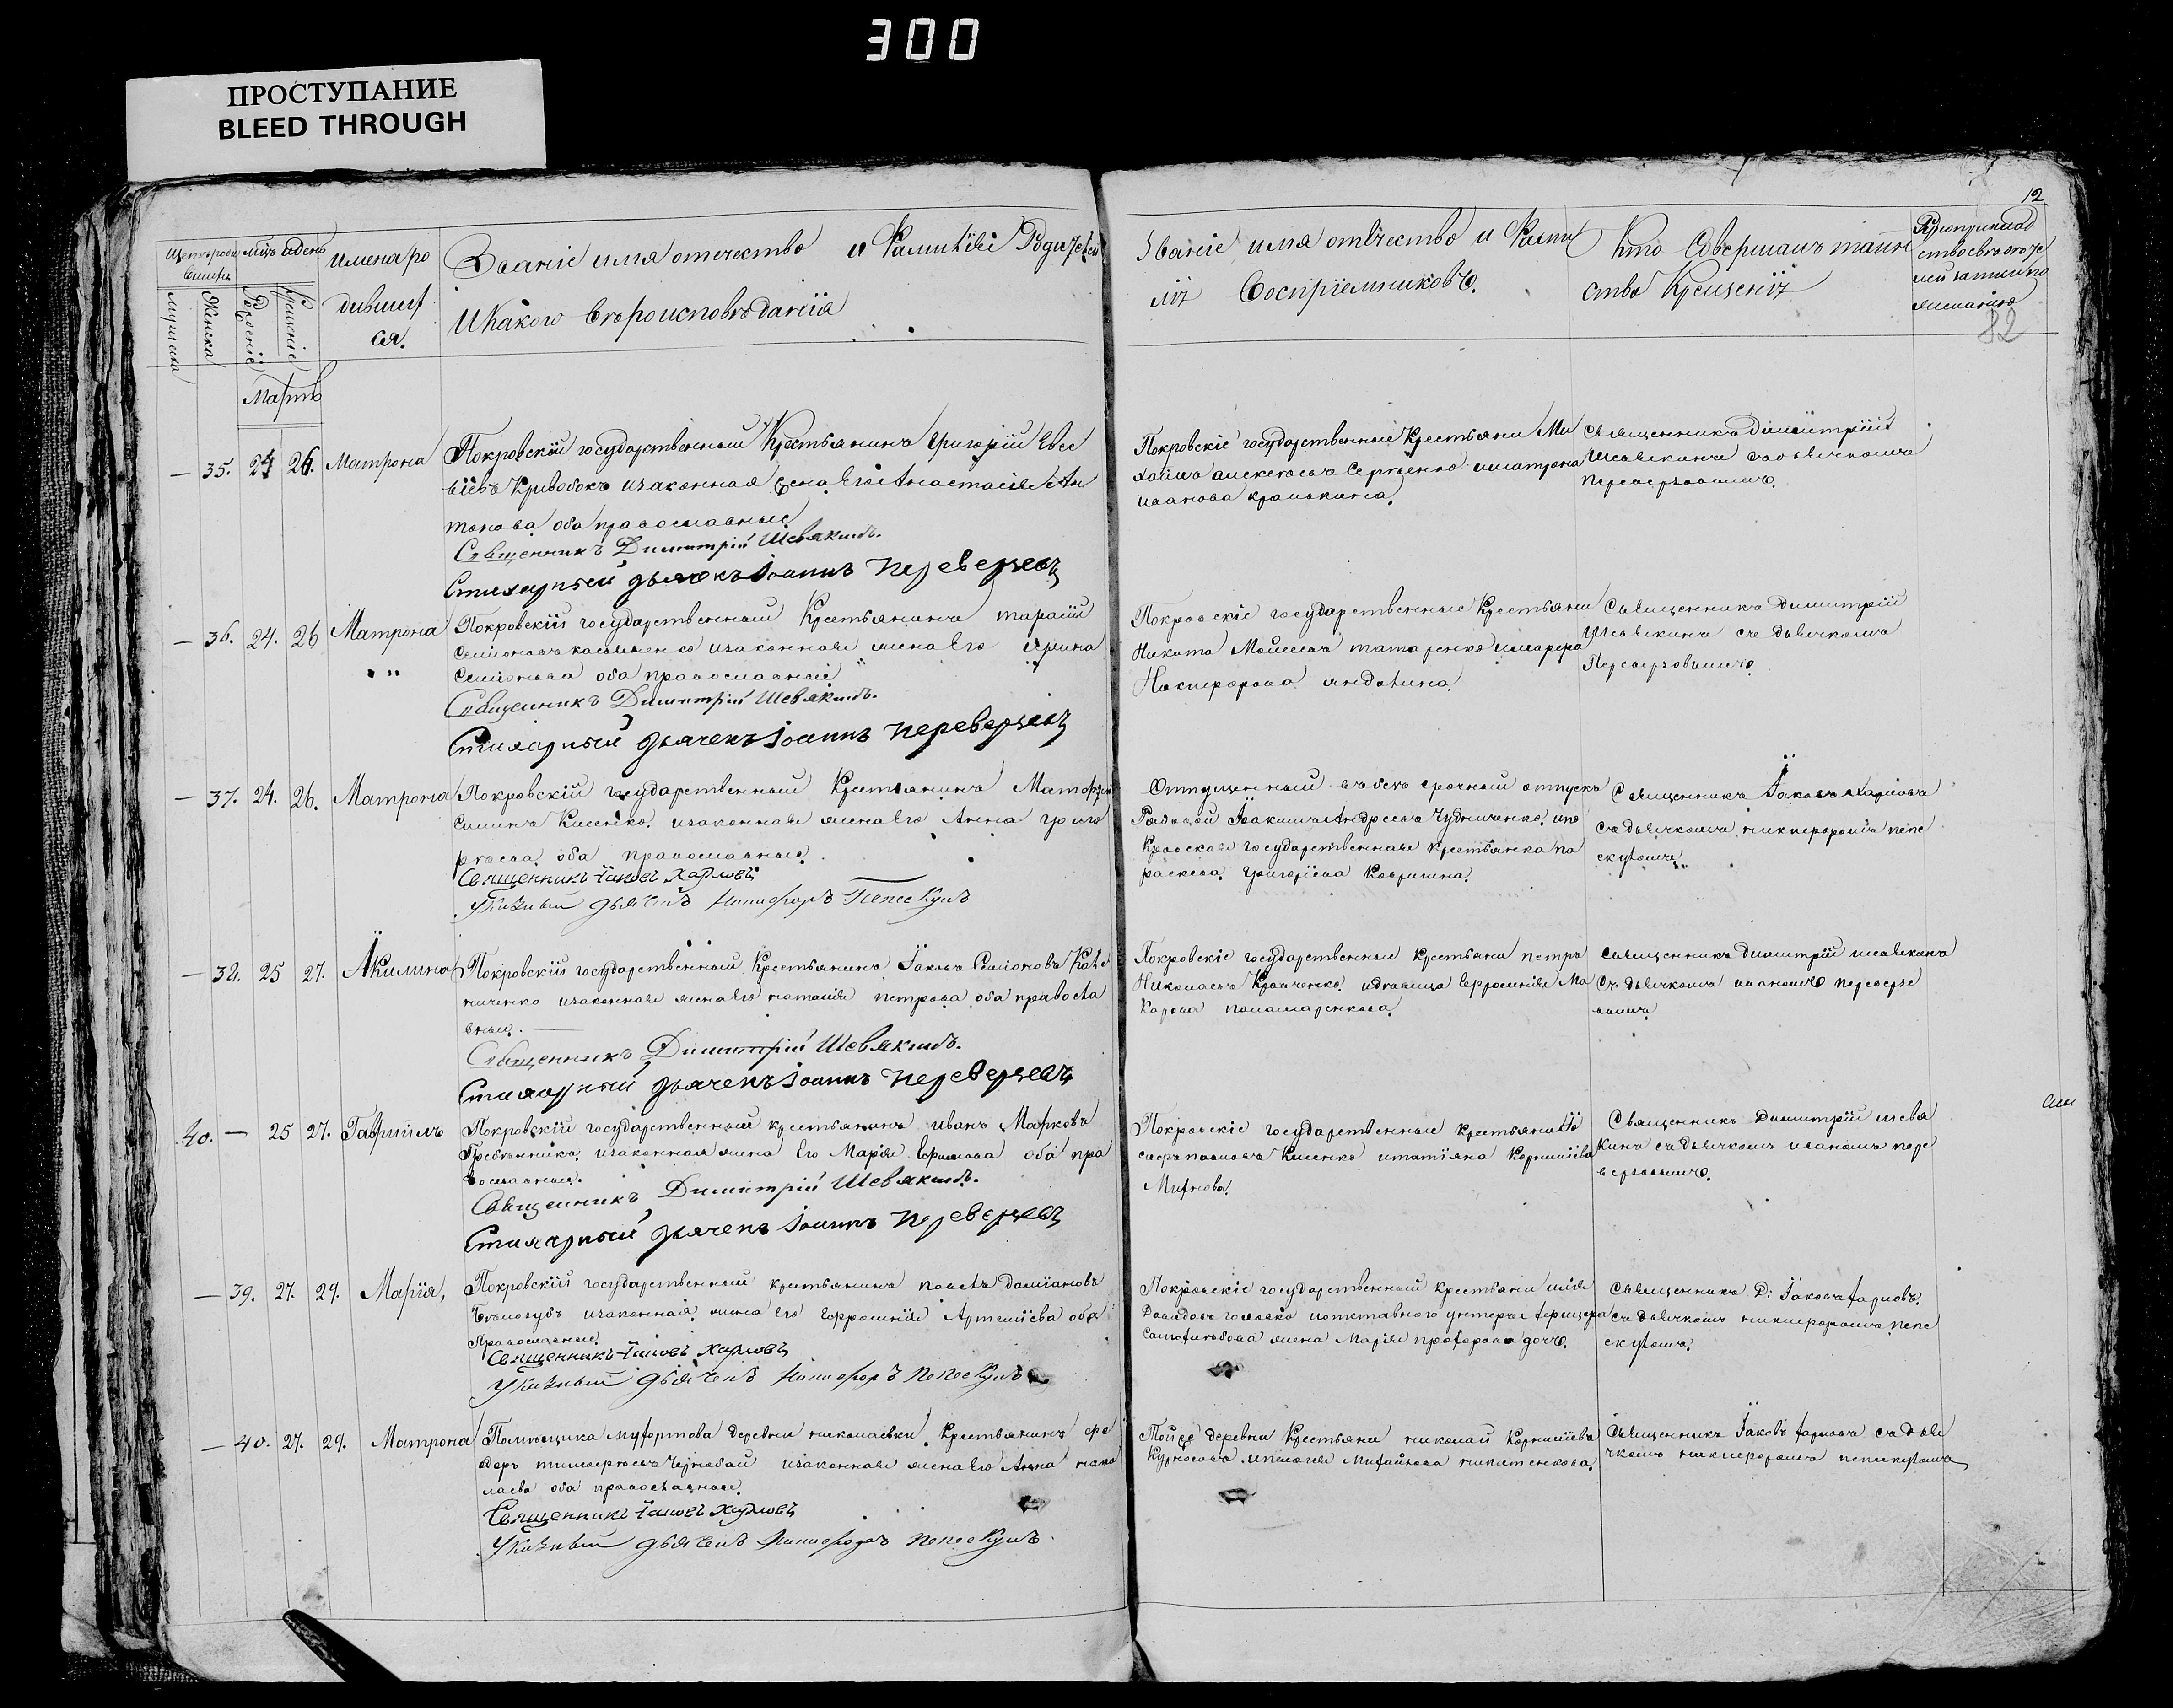 300
ПРОСТУПАНИЕ
BLEED THROUGH
12
82
Счетъ родившихся
мѣсяцъ и день
Мужеска
Женска
Рожденія
Крещенія
Имена родившихся.
Званіе имя отечество и Фамиліи Родителей
И какого вѣроисповѣданія
Званіе имя отѣчество и Фамиліи
Воспріемниковъ.
Кто Совершалъ таинство Крещенія
Мартъ
— 35. 24 26. Матрона
Покровскій государственный Крестьянинъ Григорій Евсе
віевъ Кривобокъ и законная жена Его Анастасія Ан
тонова оба православные
Священникъ Димитрій Шевякинъ.
Стихарный дьячекъ Іоаннъ Переверзевъ
Покровскіе государственные Крестьяни Ми
хаилъ Алексѣевъ Сергѣенко и Матрона
Иванова
Священникъ Димитрій
Шевякинъ съ дьячкомъ
Переверзовымъ.
— 36. 24. 26 Матрона
Покровскій государственный Крестьянинъ Тарасій
Семіоновъ и законная жена Его Ирина
Семіонова оба православные
Священникъ Димитрій Шевякинъ.
Стихарный дьячекъ Іоаннъ Переверзевъ
Покровскіе государственные Крестьяни
Никита Моисеевъ Татаренко и Марфа
Никифорова
Священникъ Димитрій
Шевякинъ съ дьячкомъ
Переверзовымъ.
— 37. 24. 26. Матрона
Покровскій государственный Крестьянинъ Матфей
Симинъ Кисенко. и законная жена Его Анна Григо
рьева. оба православные.
Священникъ Іаковъ Харловъ
Указный дьячекъ Никифоръ Пепескулъ
Отпущенный въ безсрочный отпускъ
Рядовой Іоакимъ Андреевъ Чудниченко. и по
кровская государственная крестьянка Па
раскева Григоріева Ковригина.
Священникъ Іаковъ Харловъ
съ дьячкомъ никифоромъ пепе
скуломъ.
— 38. 25 27. Акилина
Покровскій государственный Крестьянинъ Іаковъ Семіоновъ Кале
ниченко и законная жена Его Наталія Петрова оба правосла
вные. —
Священникъ Димитрій Шевякинъ.
Стихарный дьячекъ Іоаннъ Переверзевъ
Покровскіе государственные крестьяни Петръ
Николаевъ Кравченко. и дѣвица Евфросинія Ма
карова Паламаренкова.
Священникъ Димитрій Шевякинъ
съ дьячкомъ иваномъ переверзе
вымъ
40. — 25 27. Гавріилъ
Покровскій государственный крестьянинъ Иванъ Марковъ
Гребенниковъ. и законная жена Его Марія Ефимова оба пра
вославные.
Священникъ Димитрій Шевякинъ.
Стихарный дьячекъ Іоаннъ Переверзевъ
Покровскіе государственные крестьяни Іо
сифъ Павловъ Кисенко и Татіяна Корниліева
Священникъ Димитрій Шевя
кинъ съ дьячкомъ иваномъ пере
верзовымъ.
— 39. 27. 29. Марія,
Покровскій государственный крестьянинъ Павелъ Даміановъ
Бѣлозубъ и законная жена Его Евфросинія Артеміева оба
Православные
Священникъ Іаковъ Харловъ
Указный дьячекъ Никифоръ Пепескулъ
Покровскіе государственный крестьяни Илія
Давидовъ Головко и отставного унтеръ офицера
жена Марія дочь.
Священникъ Д: Іаковъ Харловъ.
съ дьячкомъ никифоромъ пепе
скуломъ.
— 40. 27. 29. Матрона
Помѣщика деревни николаевки. Крестьянинъ Фе
доръ Тимофеевъ Чернобай и законная жена Его Анна Нико
лаева оба православные.
Священникъ Іаковъ Харловъ
Указный дьячекъ Никифоръ Пепескулъ.
Тойже деревни Крестьяни Николай Корниліевъ
Курносовъ и Пелагея Михайлова Никитенкова.
Священникъ Іаковъ Харловъ съ дья
чкомъ никифоромъ пепескуломъ